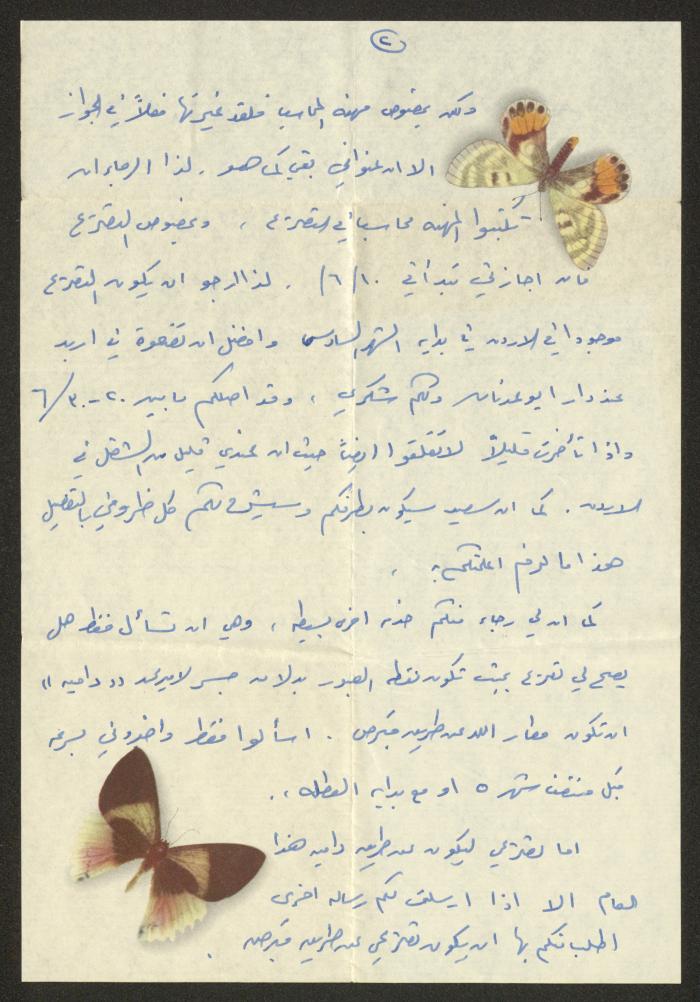 ٢
ولكن بخصوص مهنة المحاسب فلقد غيرتها فعلاً في الجواز
الا ان عنواني بقي كما هو . لذا الرجاء ان
تكتبوا المهنه محاسباً في التصريح ، وبخصوص التصريح
فان اجازتي تبدأ في ١٠/٦/ . لذا ارجو ان يكون التصريح
موجوداً في الاردن في بداية الشهر السادس وافضل ان تضعوة في اربد
عند دار ابو عدنان ولكم شكري ، وقد اصلكم ما بين ٢٠-٣٠/٦
واذا تأخرت قليلاً لا تقلقوا ايضاً حيث ان عندي قليل من الشغل في
الاردن . كما ان سعيد سيكون بطرفكم وسيشرح لكم كل ظروفي بالتفصيل
هذا ما لزم اعلمتكم به ،
كما ان لي رجاء منكم خدمه اخرى بسيطه ، وهي ان تسأل فقط هل
يصح لي تصريح بحيث تكون نقطه العبور بدلا من جسر الامير محمد (( داميه ))
ان تكون مطار اللد عن طريق قبرص . اسألوا فقط واخبروني بسرعه
قبل منتصف شهر ٥ او مع بدايه العطله ،.
اما تصريحي ليكون عن طريق داميه هذا
العام الا اذا ارسلت لكم رساله اخرى
اطلب منكم بها ان يكون تصريحي عن طريق قبرص .